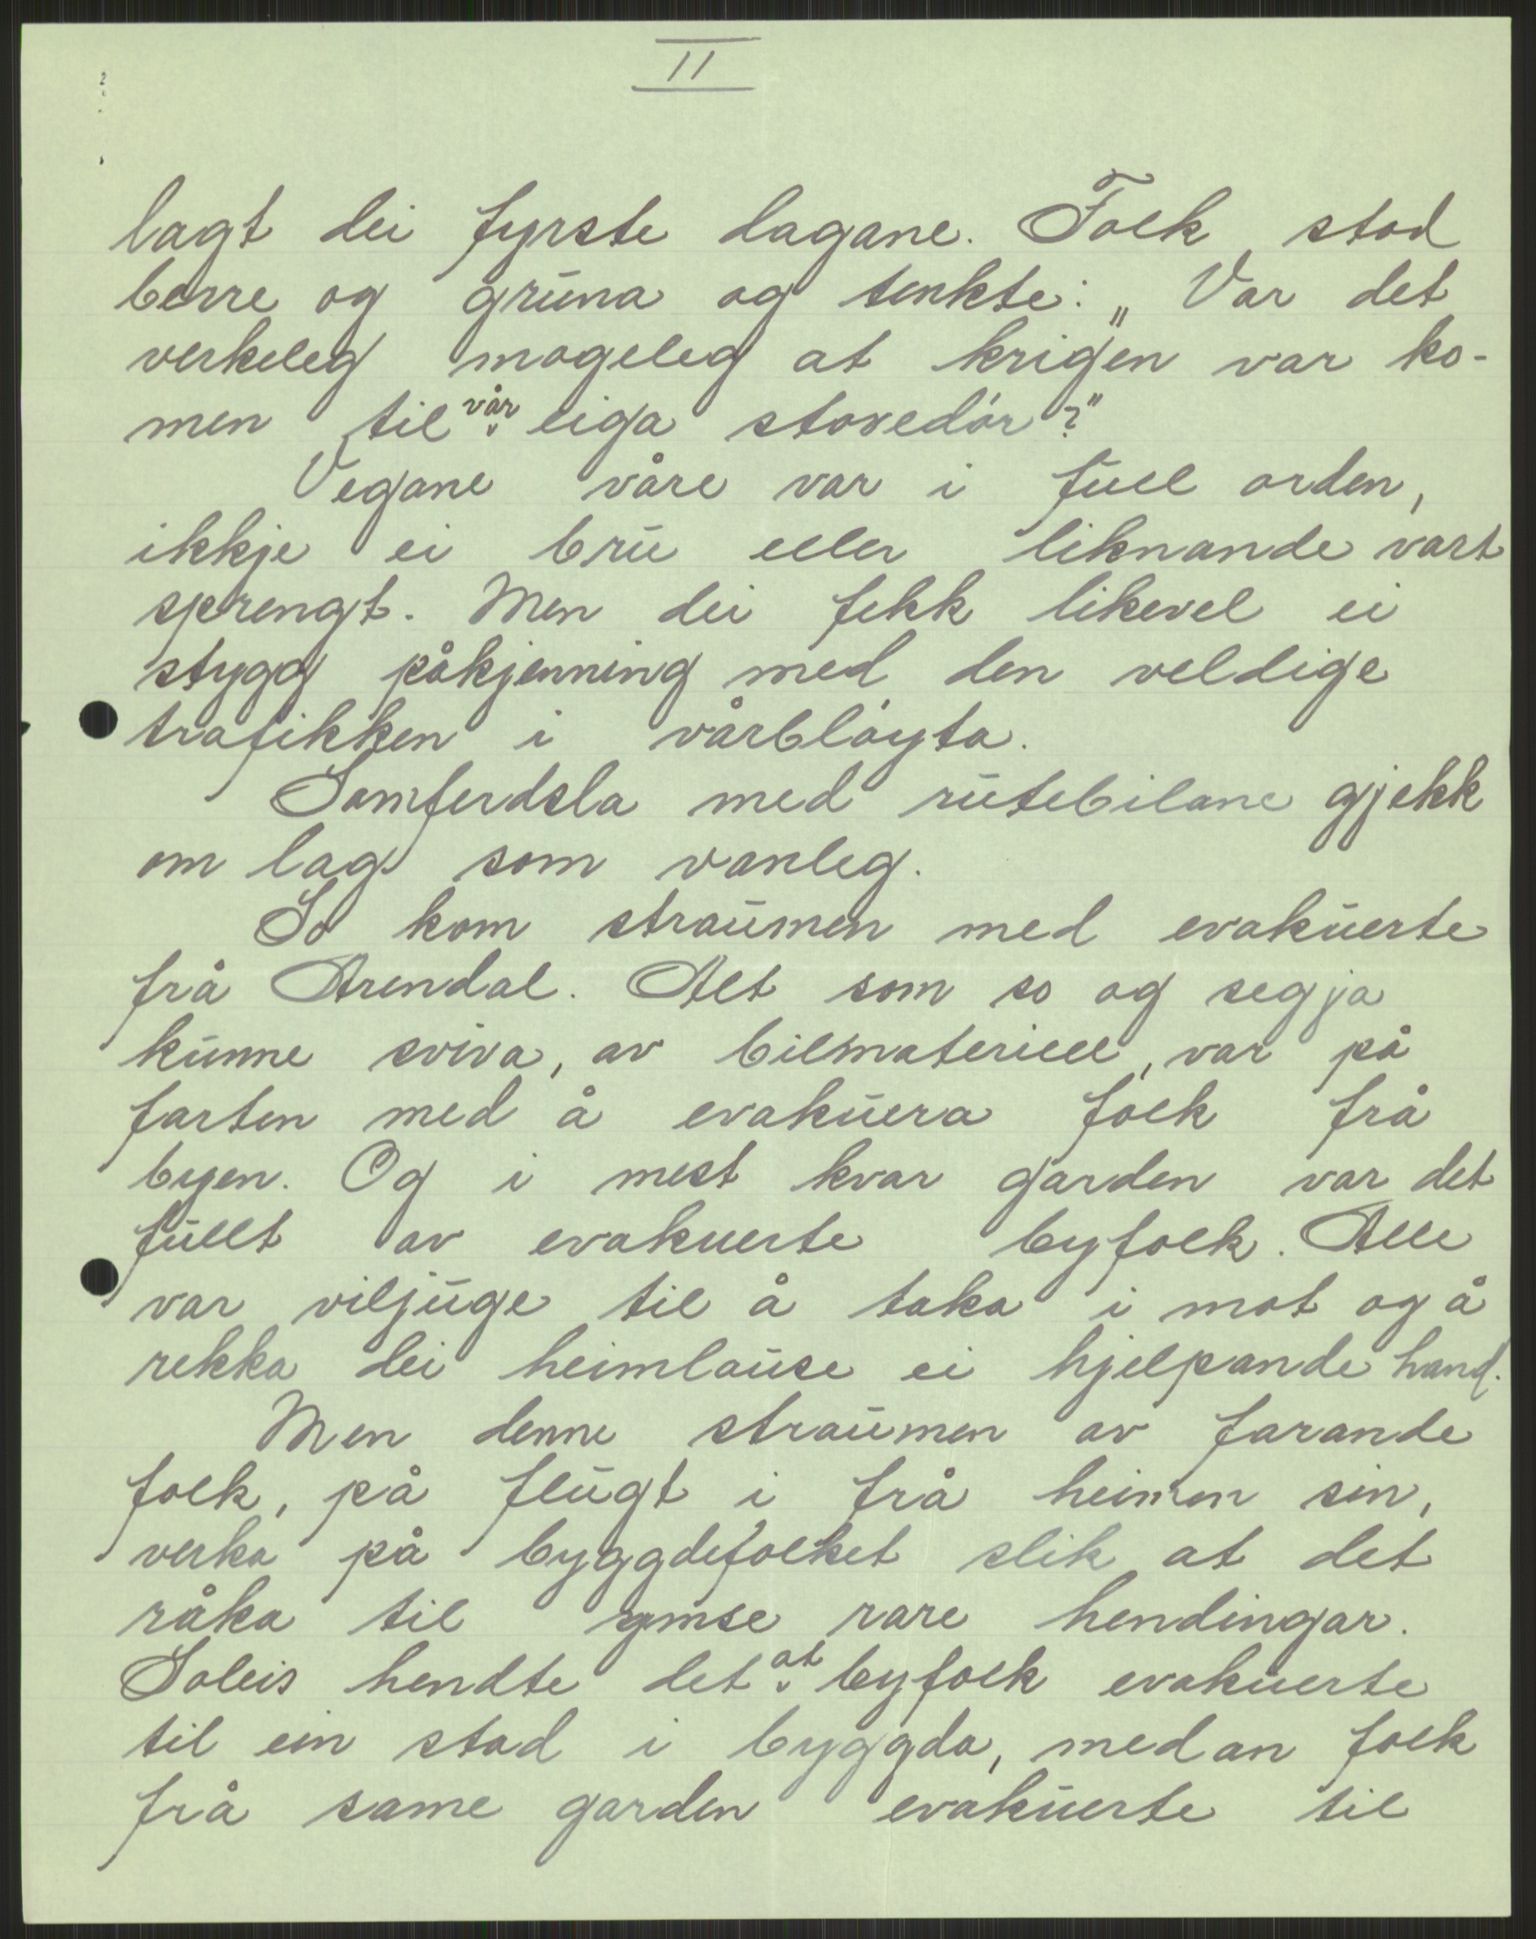 II
lagt dei fyrste dagane. Folk stod
berre og gruna og tenkte: „Var det
verkeleg mogeleg at krigen var ko-
men til vår eiga stovedör?"
Vegane våre var i full orden,
ikkje ei bru eller liknande vart
sprengt. Men dei fekk likevel ei
stygg påkjenning med den veldige
trafikken i vårblöyta.
Samferdsla med rutebilane gjekk
om lag som vanleg.
So kom straumen med evakuerte
frå Arendal. Alt som so og segja
kunne sviva, av bilmateriell, var på
farten med å evakuera folk frå
byen. Og i mest kvar garden var det
fullt av evakuerte byfolk. Alle
var viljuge til å taka i mot og å
rekka dei heimlause ei hjelpande hand.
Men denne straumen av farande
folk, på flugt i frå heimen sin,
verka på byggdefolket slik at det
råka til ymse rare hendingar.
Soleis hendte det at byfolk evakuerte
til ein stad i byggda, medan folk
frå same garden evakuerte til